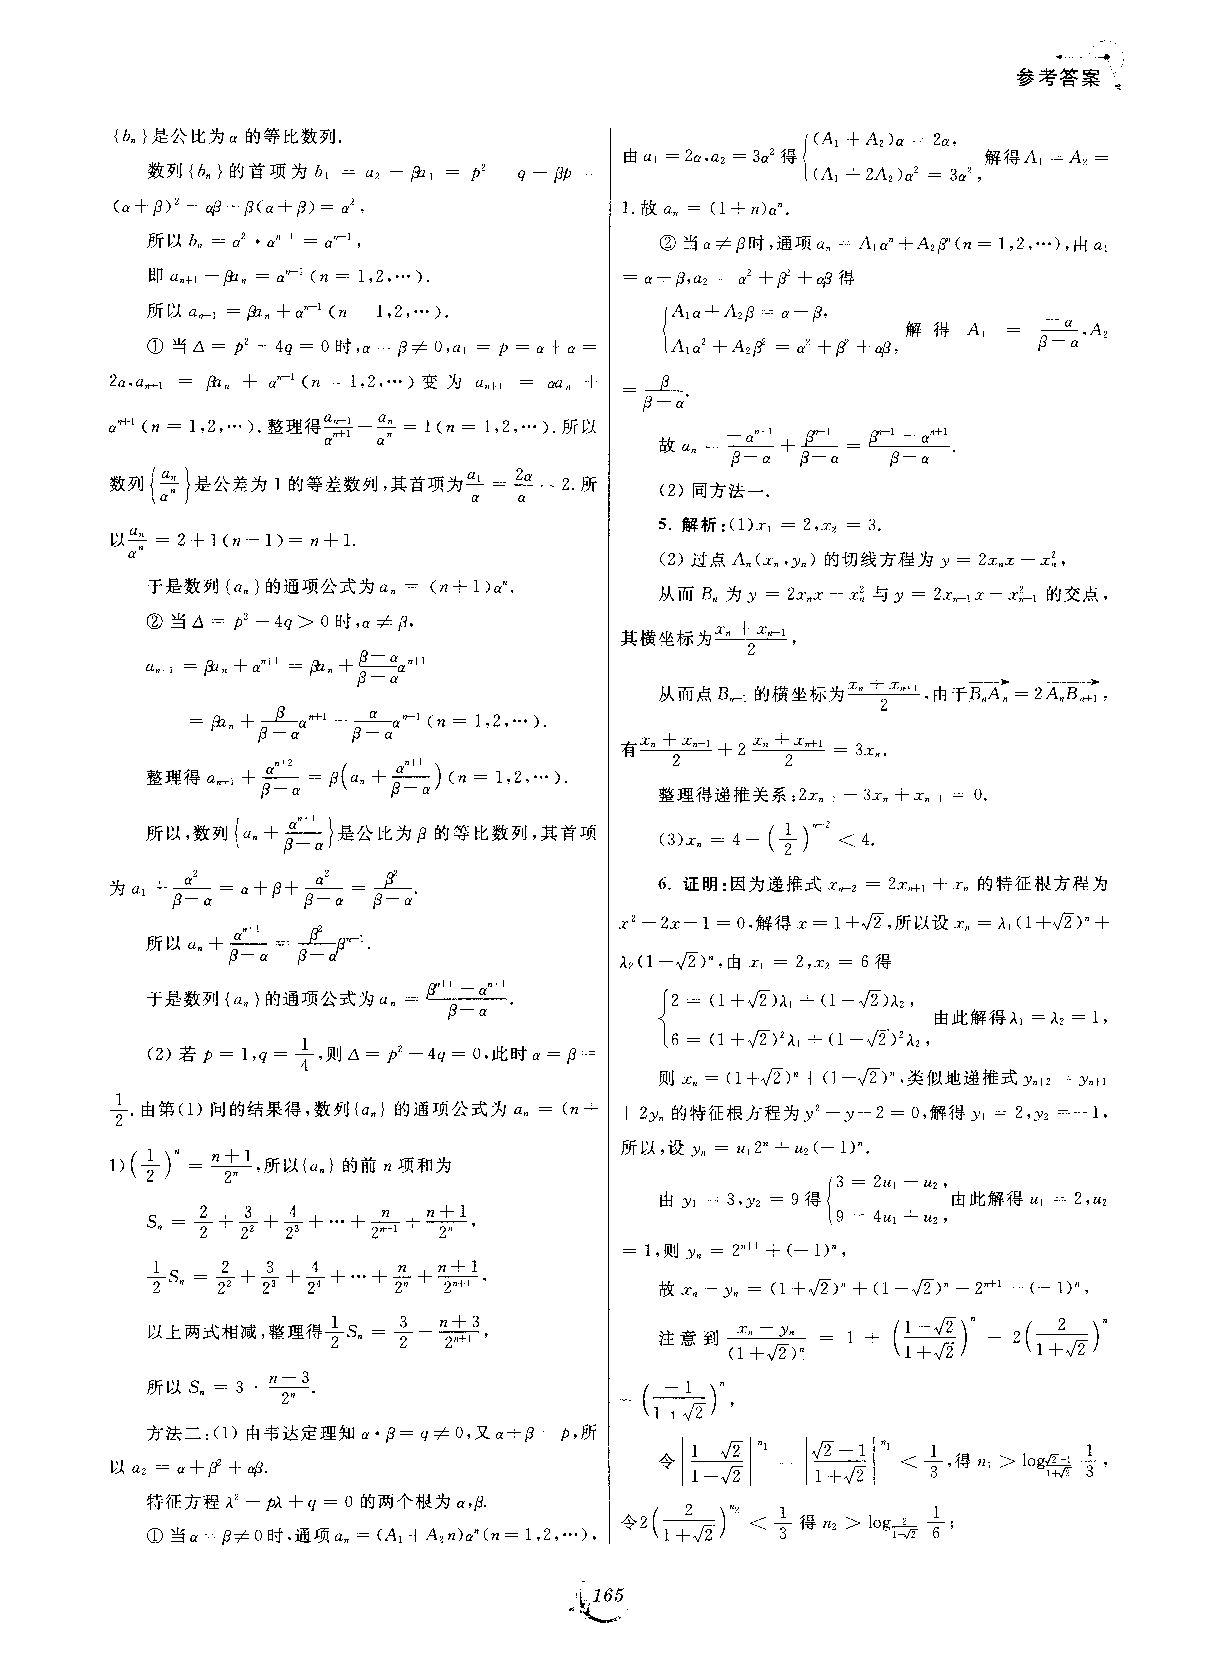 参考答案
{bₙ}是公比为α的等比数列.
数列{bₙ}的首项为 b₁ = a₂ − βa₁ = p² − q − βp =
(α+β)² − αβ − β(α+β) = α²,
所以 bₙ = α²·αⁿ⁻¹ = αⁿ⁺¹,
即 aₙ₊₁ − βaₙ = αⁿ⁺¹ (n = 1,2,⋯).
所以 aₙ₊₁ = βaₙ + αⁿ⁺¹ (n = 1,2,⋯).
① 当 Δ = p² − 4q = 0 时,α = β ≠ 0,a₁ = p = α + α =
2α,aₙ₊₁ = βaₙ + αⁿ⁺¹ (n = 1,2,⋯) 变为 aₙ₊₁ = αaₙ +
αⁿ⁺¹ (n = 1,2,⋯).整理得 aₙ₊₁/αⁿ⁺¹ − aₙ/αⁿ = 1(n = 1,2,⋯).所以
数列{aₙ/αⁿ}是公差为1的等差数列,其首项为 a₁/α = 2α/α = 2.所
以 aₙ/αⁿ = 2+1(n−1) = n+1.
于是数列{aₙ}的通项公式为 aₙ = (n+1)αⁿ.
② 当 Δ = p² − 4q > 0 时,α ≠ β,
aₙ₊₁ = βaₙ + αⁿ⁺¹ = βaₙ + (β−α)/(β−α) αⁿ⁺¹
= βaₙ + β/(β−α) αⁿ⁺¹ − α/(β−α) αⁿ⁺¹ (n = 1,2,⋯).
整理得 aₙ₊₁ + αⁿ⁺²/(β−α) = β(aₙ + αⁿ⁺¹/(β−α)) (n = 1,2,⋯).
所以,数列{aₙ + αⁿ⁺¹/(β−α)}是公比为β的等比数列,其首项
为 a₁ + α²/(β−α) = α+β+ α²/(β−α) = β²/(β−α).
所以 aₙ + αⁿ⁺¹/(β−α) = β²/(β−α) βⁿ⁻¹.
于是数列{aₙ}的通项公式为 aₙ = (βⁿ⁺¹ − αⁿ⁺¹)/(β−α).
(2) 若 p = 1,q = 1/4,则 Δ = p² − 4q = 0,此时 α = β =
1/2.由第(1)问的结果得,数列{aₙ}的通项公式为 aₙ = (n+
1)(1/2)ⁿ = (n+1)/2ⁿ,所以{aₙ}的前 n 项和为
Sₙ = 2/2 + 3/2² + 4/2³ + ⋯ + n/2ⁿ⁻¹ + (n+1)/2ⁿ,
1/2 Sₙ = 2/2² + 3/2³ + 4/2⁴ + ⋯ + n/2ⁿ + (n+1)/2ⁿ⁺¹,
以上两式相减,整理得 1/2 Sₙ = 3/2 − (n+3)/2ⁿ⁺¹,
所以 Sₙ = 3 · (n−3)/2ⁿ.
方法二:(1) 由韦达定理知 α·β = q ≠ 0,又 α+β = p,所
以 a₂ = α+β²+αβ.
特征方程 λ² − pλ + q = 0 的两个根为 α,β.
① 当 α = β≠0 时,通项 aₙ = (A₁+A₂n)αⁿ(n = 1,2,⋯),
由 a₁ = 2α,a₂ = 3α² 得 {(A₁ + A₂)α = 2α, (A₁ + 2A₂)α² = 3α², 解得 A₁ = A₂ =
1.故 aₙ = (1+n)αⁿ.
② 当 α ≠ β 时,通项 aₙ = A₁αⁿ + A₂βⁿ(n = 1,2,⋯),由 a₁
= α+β,a₂ = α² + β² + αβ 得
{A₁α + A₂β = α+β, A₁α² + A₂β² = α² + β² + αβ, 解得 A₁ = −α/(β−α),A₂
= β/(β−α).
故 aₙ = −αⁿ⁺¹/(β−α) + βⁿ⁺¹/(β−α) = (βⁿ⁺¹ − αⁿ⁺¹)/(β−α).
(2) 同方法一.
5. 解析:(1)x₁ = 2,x₂ = 3.
(2) 过点 Aₙ(xₙ,yₙ) 的切线方程为 y = 2xₙx − xₙ²,
从而 Bₙ 为 y = 2xₙx − xₙ² 与 y = 2xₙ₋₁x − xₙ₋₁² 的交点,
其横坐标为 (xₙ + xₙ₋₁)/2,
从而点 Bₙ₊₁ 的横坐标为 (xₙ + xₙ₊₁)/2,由于 BₙAₙ→ = 2AₙBₙ₊₁→,
有 (xₙ + xₙ₋₁)/2 + 2 (xₙ + xₙ₊₁)/2 = 3xₙ.
整理得递推关系:2xₙ₊₁ − 3xₙ + xₙ₋₁ = 0.
(3)xₙ = 4 − (1/2)ⁿ⁻² < 4.
6. 证明:因为递推式 xₙ₊₂ = 2xₙ₊₁ + xₙ 的特征根方程为
x² − 2x − 1 = 0,解得 x = 1±√2,所以设 xₙ = λ₁(1+√2)ⁿ +
λ₂(1−√2)ⁿ,由 x₁ = 2,x₂ = 6 得
{2 = (1+√2)λ₁ + (1−√2)λ₂, 6 = (1+√2)²λ₁ + (1−√2)²λ₂, 由此解得 λ₁ = λ₂ = 1,
则 xₙ = (1+√2)ⁿ + (1−√2)ⁿ,类似地递推式 yₙ₊₂ = yₙ₊₁
+ 2yₙ 的特征根方程为 y² − y − 2 = 0,解得 y₁ = 2,y₂ = −1,
所以,设 yₙ = u₁2ⁿ + u₂(−1)ⁿ.
由 y₁ = 3,y₂ = 9 得 {3 = 2u₁ − u₂, 9 = 4u₁ + u₂, 由此解得 u₁ = 2,u₂
= 1,则 yₙ = 2ⁿ⁺¹ + (−1)ⁿ,
故 xₙ − yₙ = (1+√2)ⁿ + (1−√2)ⁿ − 2ⁿ⁺¹ − (−1)ⁿ,
注意到 (xₙ − yₙ)/(1+√2)ⁿ = 1 + ((1−√2)/(1+√2))ⁿ − 2(2/(1+√2))ⁿ
− (−1/(1+√2))ⁿ,
令 |(1−√2)/(1−√2)|ⁿ¹ = |(√2−1)/(1+√2)|ⁿ¹ < 1/3,得 n₁ > log_((√2−1)/(1+√2)) 1/3,
令 2(2/(1+√2))ⁿ² < 1/3 得 n₂ > log_(2/(1+√2)) 1/6;
165